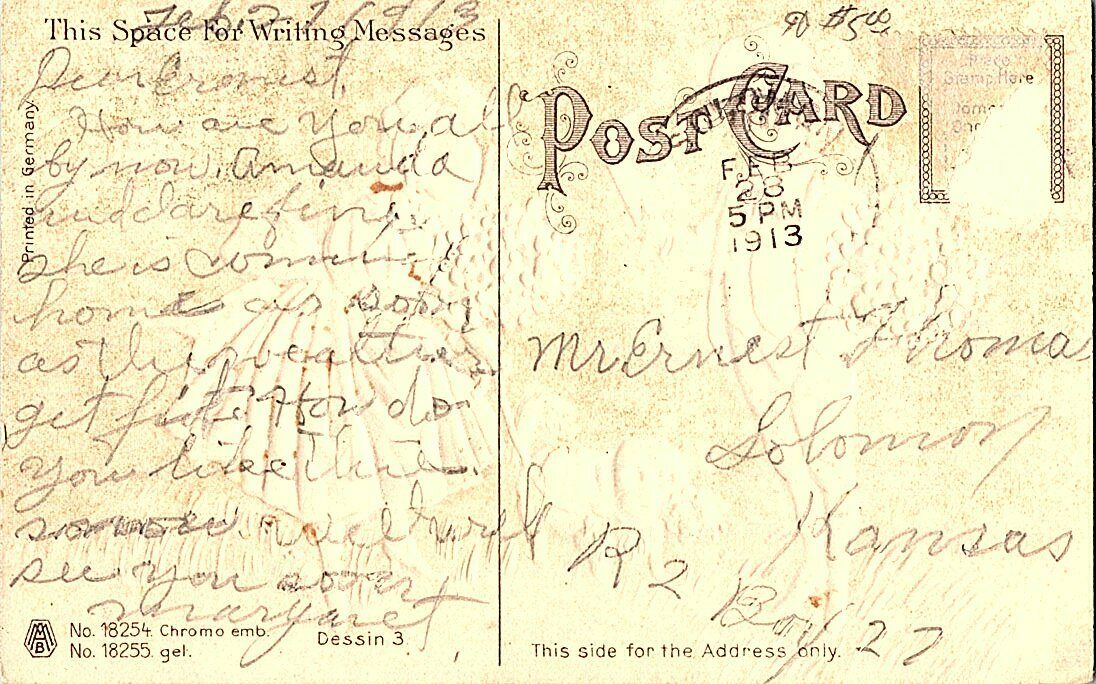 Feb. 27 1913
This Space For Writing Messages
Dear Ernest,
How are you all
by now. Amanda
and are fine
she is comming
home as soon
as the weather
get fit. How do
you like this
snow. well will
see you soon
Margaret
Printed in Germany
No. 18254. Chromo emb.
No. 18255. gel.
Dessin 3.
$5.00
POST CARD
FEB
28
5 PM
1913
Place
Stamp Here
Mr. Ernest Thomas
Solomon
Kansas
R 2
Box 27
This side for the Address only.